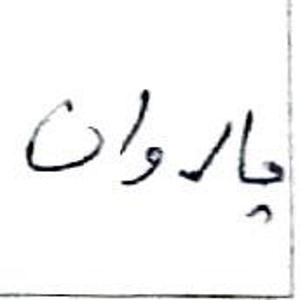 پاروان